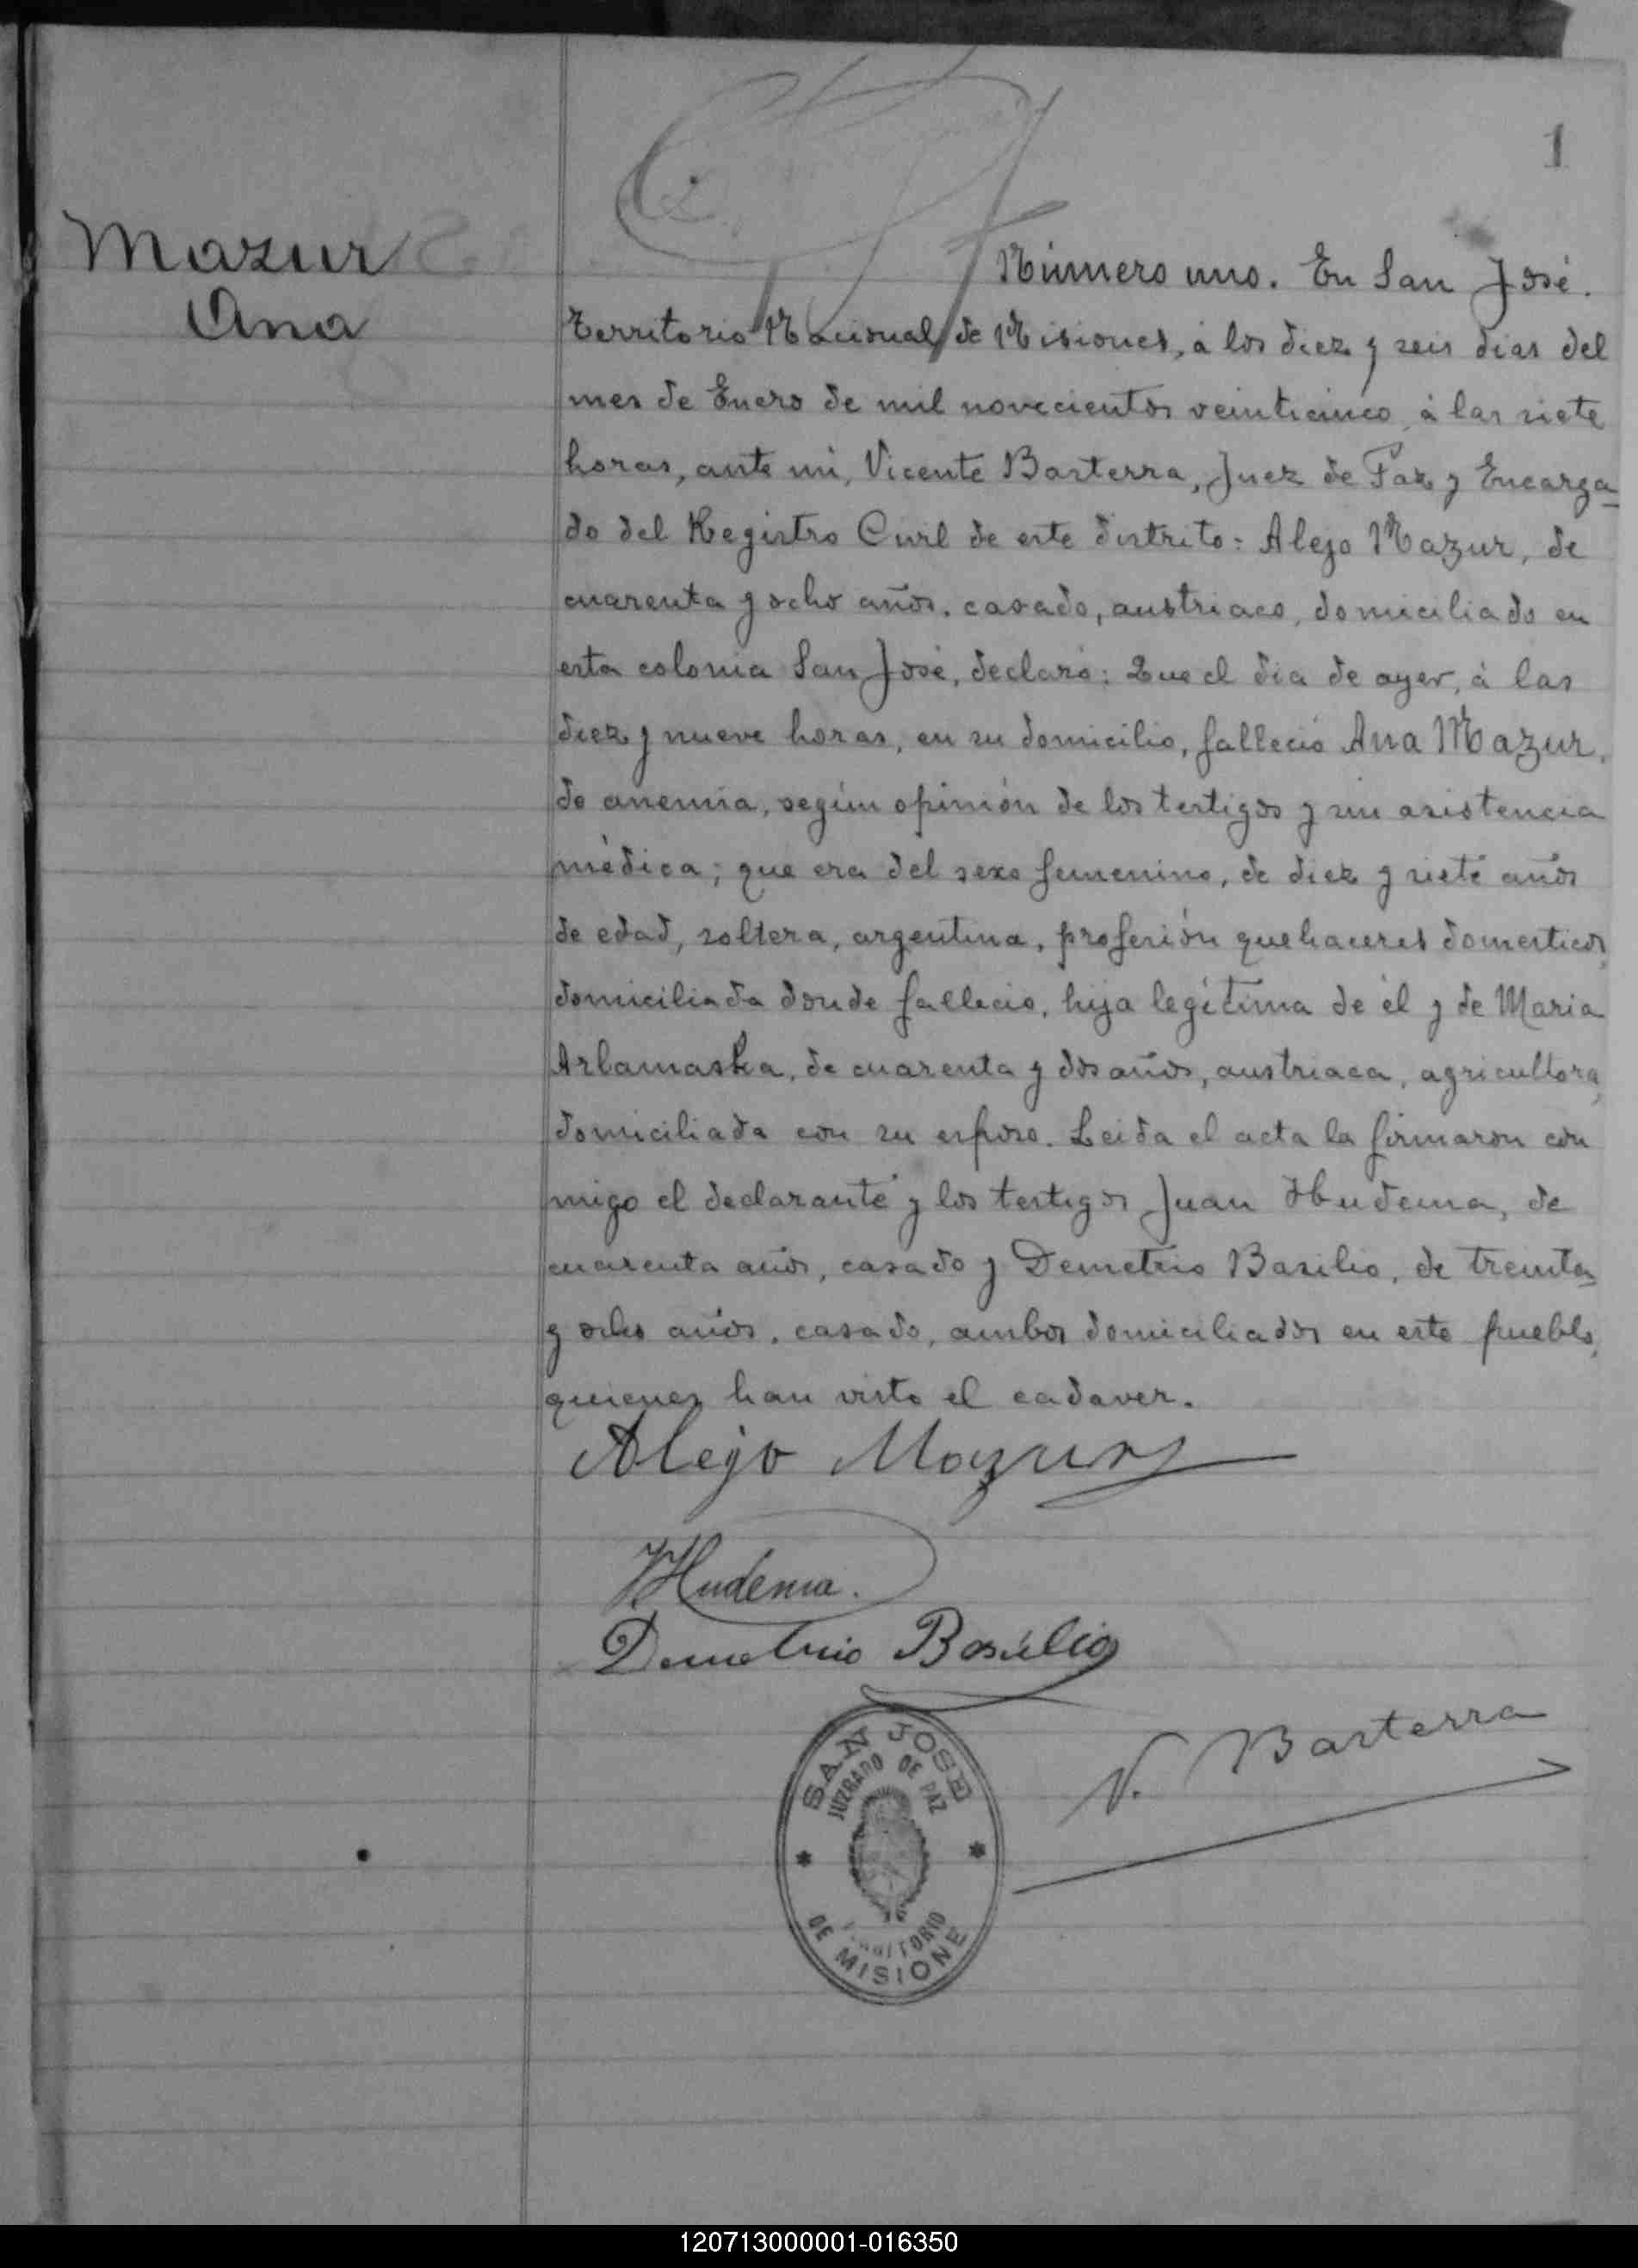 1
Mazur
Ana
Número uno. En San José.
Territorio Nacional de Misiones, á los diez y seis dias del
mes de Enero de mil novecientos veinticinco, á las siete
horas, ante mi, Vicente Barterra, Juez de Paz y Encarga-
do del Registro Civil de este distrito: Alejo Mazur, de
cuarenta y ocho años, casado, austriaco, domiciliado en
esta colonia San José, declaró: Que el dia de ayer, á las
diez y nueve horas, en su domicilio, falleció Ana Mazur,
de anemia, según opinión de los testigos y sin asistencia
médica; que era del sexo femenino, de diez y siete años
de edad, soltera, argentina, profesión quehaceres domesticos,
domiciliada donde fallecio, hija legítima de él y de Maria
Arlamaska, de cuarenta y dos años, austriaca, agricultora,
domiciliada con su esposo. Leida el acta la firmaron con
migo el declarante y los testigos Juan Hudema, de
cuarenta años, casado y Demetrio Basilio, de treinta
y ocho años, casado, ambos domiciliados en este pueblo,
quienes han visto el cadaver.
Alejo Mazur
JHudema.
Demetrio Basilio
V. Barterra
SAN JOSE
JUZGADO DE PAZ
TERRITORIO
DE MISIONE
120713000001-016350